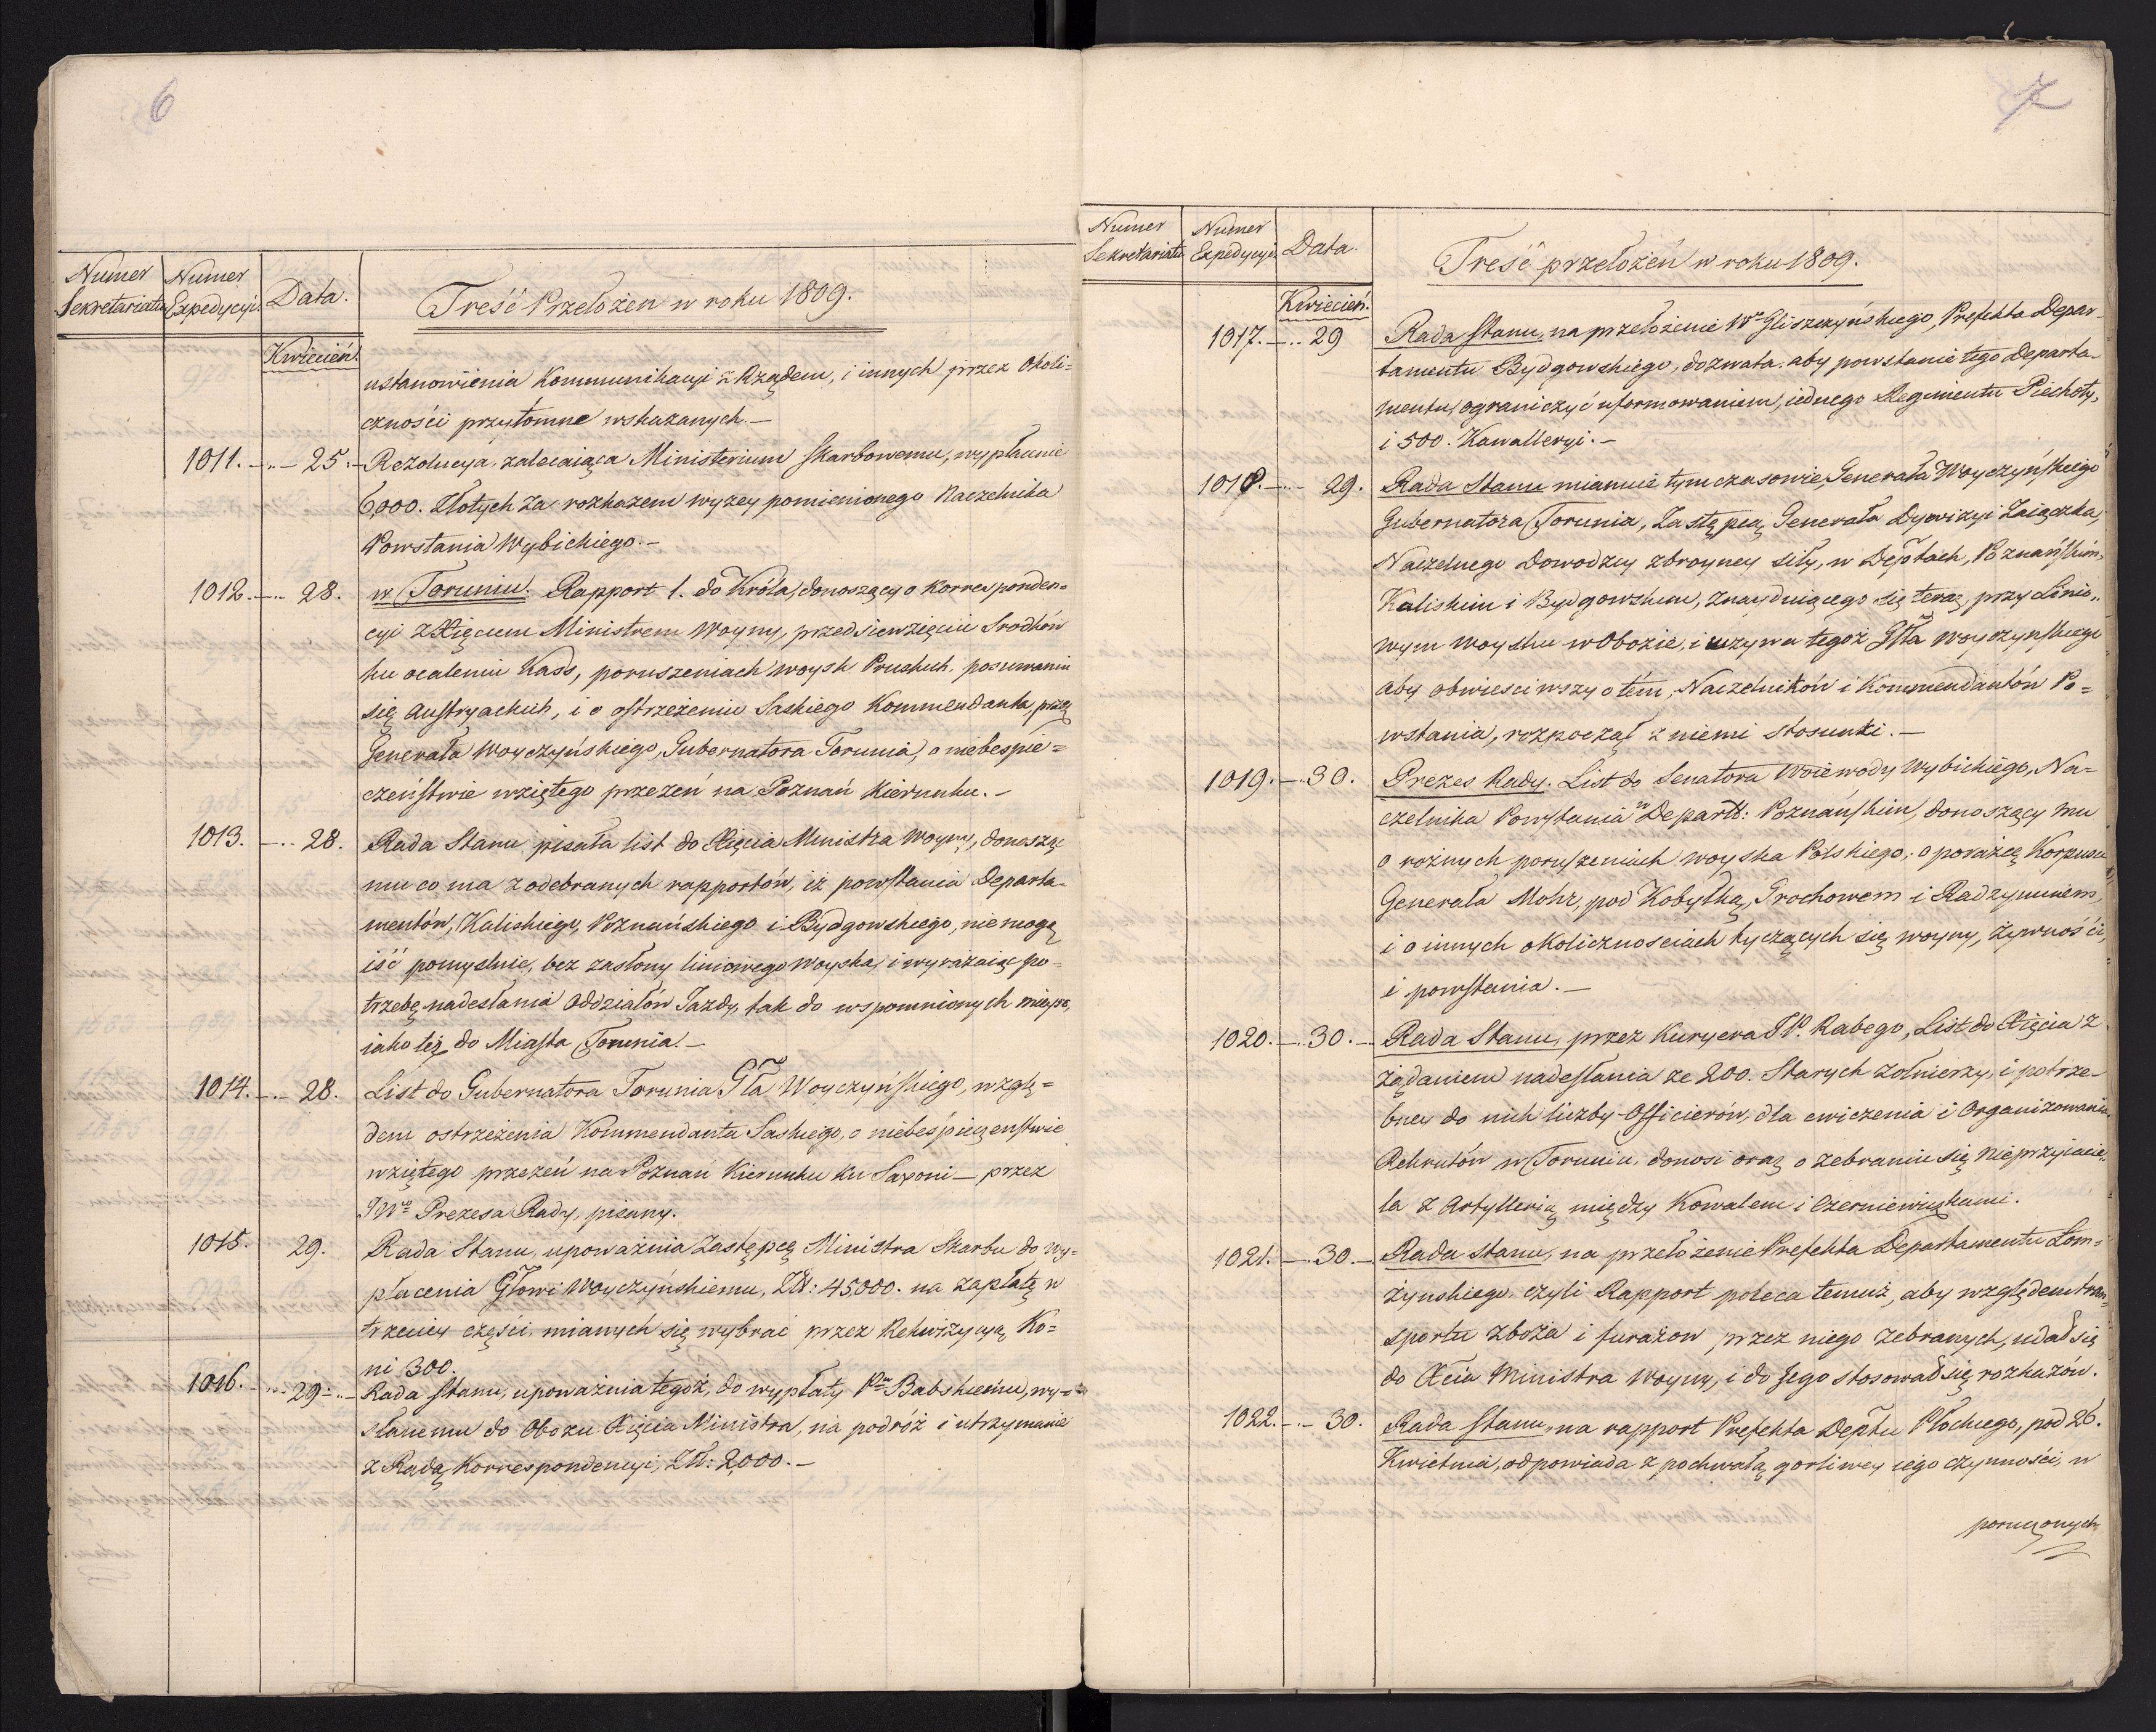 6
Numer Sekretariatu
Numer Expedycyi.
Data.
Treść Przełożen w roku 1809.
Kwiecień.
ustanowienia Kommunikacyi z Rządem, i innych przez Okoli=
czności przytomne wskazanych.—
1011. — 25. Rezolucya, zalecaiąca Ministerium Skarbowemu, wypłacenie
6,000. Złotych za rozkazem wyzey pomienionego Naczelnika
Powstania Wybickiego.—
1012. — 28. w Toruniu. Rapport 1. do Króla, donoszący o Korresponden=
cyi z Xięciem Ministrem Woyny, przedsiewzięciu Srodków
ku ocaleniu Kass, poruszeniach woysk Pruskich, posuwaniu
się Austryackich, i o ostrzeżeniu Saskiego Kommendanta, przez
Generała Woyczyńskiego, Gubernatora Torunia, o niebespie=
czeństwie wziętego przezeń na Poznań Kierunku.—
1013. — 28. Rada Stanu pisała list do Xięcia Ministra Woyny, donosząc
mu co ma z odebranych rapportów, iż powstania Departa=
mentów, Kaliskiego, Poznańskiego i Bydgowskiego, nie mogą
iść pomyslnie, bez zasłony liniowego woyska, i wyrażaiąc po=
trzebę nadesłania Oddziałów Jazdy, tak do wspomnionych mieysc,
iako też do Miasta Torunia.—
1014. — 28. List do Gubernatora Torunia Gła Woyczyńskiego, wzglę=
dem ostrzeżenia Kommendanta Saskiego, o niebespieczenstwie
wziętego przezeń na Poznań Kierunku ku Saxoni — przez
JWo Prezesa Rady, pisany.
1015. 29. Rada Stanu, upoważnia Zastępcę Ministra Skarbu do wy=
płacenia Głowi Woyczyńskiemu, Zł: 45,000. na zapłatę w
trzeciey części, mianych się wybrać przez Rekwizycyą Ko=
ni 300.
1016. — 29 — Rada Stanu, upoważnia tegoż, do wypłaty Pu Babskiemu, wy=
słanemu do Obozu Xięcia Ministra, na podróż i utrzymanie
z Radą Korrespondencyi, Zł: 2,000.—
7
Numer Sekretariatu
Numer Expedycyi.
Data.
Treść przełożeń w roku 1809.
Kwiecień.
1017. — 29 Rada Stanu, na przełożenie Wo Gliszczyńskiego, Prefekta Depar=
tamentu Bydgowskiego, dozwala, aby powstanie tego Departa=
mentu, ograniczyć uformowaniem, iednego Regimentu Piechoty,
i 500. Kawalleryi.—
1018. — 29. Rada Stanu mianuie tymczasowie, Generała Woyczyńskiego
Gubernatora Torunia, Zastępcą Generała Dywizyi Zaiączka,
Naczelnego Dowodzcy zbroyney siły, w Deptach, Poznańskim,
Kaliskim i Bydgowskim, znayduiącego się teraz, przy Linio=
wym woysku w Obozie, i wzywa tegoż Gła Woyczyńskiego
aby obwieściwszy o tém, Naczelników i Kommendantów Po=
wstania, rozpoczął z niemi stosunki.—
1019. — 30. Prezes Rady. List do Senatora Woiewody Wybickiego, Na=
czelnika Powstania w Departt: Poznańskim, donoszący mu
o rożnych poruszeniach woyska Polskiego; o porażce Korpusu
Generała Mohr, pod Kobyłką, Grochowem i Radzyminem,
i o innych okolicznosciach tyczących się woyny, żywności,
i powstania.—
1020. — 30. — Rada Stanu, przez Kuryera JP. Rabego, List do Xięcia z
żądaniem nadesłania ze 200. Starych żołnierzy, i potrze=
bney do nich liczby Officierów, dla ćwiczenia i Organizowania
Rekrutów w Toruniu, donosi oraz o zebraniu się nieprzyiacie=
la z Artylleryą między Kowalem i Czerniewiczkami.
1021. — 30. — Rada Stanu, na przełożenie Prefekta Departamentu Łom=
żynskiego, czyli Rapport poleca temuż, aby względem tran=
sportu zboża i furażow przez niego zebranych, udał się
do Xcia Ministra Woyny, i do Jego stosował się rozkazów.
1022. — 30. Rada Stanu, na rapport Prefekta Deptu Płockiego, pod 26.
Kwietnia, odpowiada z pochwałą gorliwey iego czynności, w
poruczonych